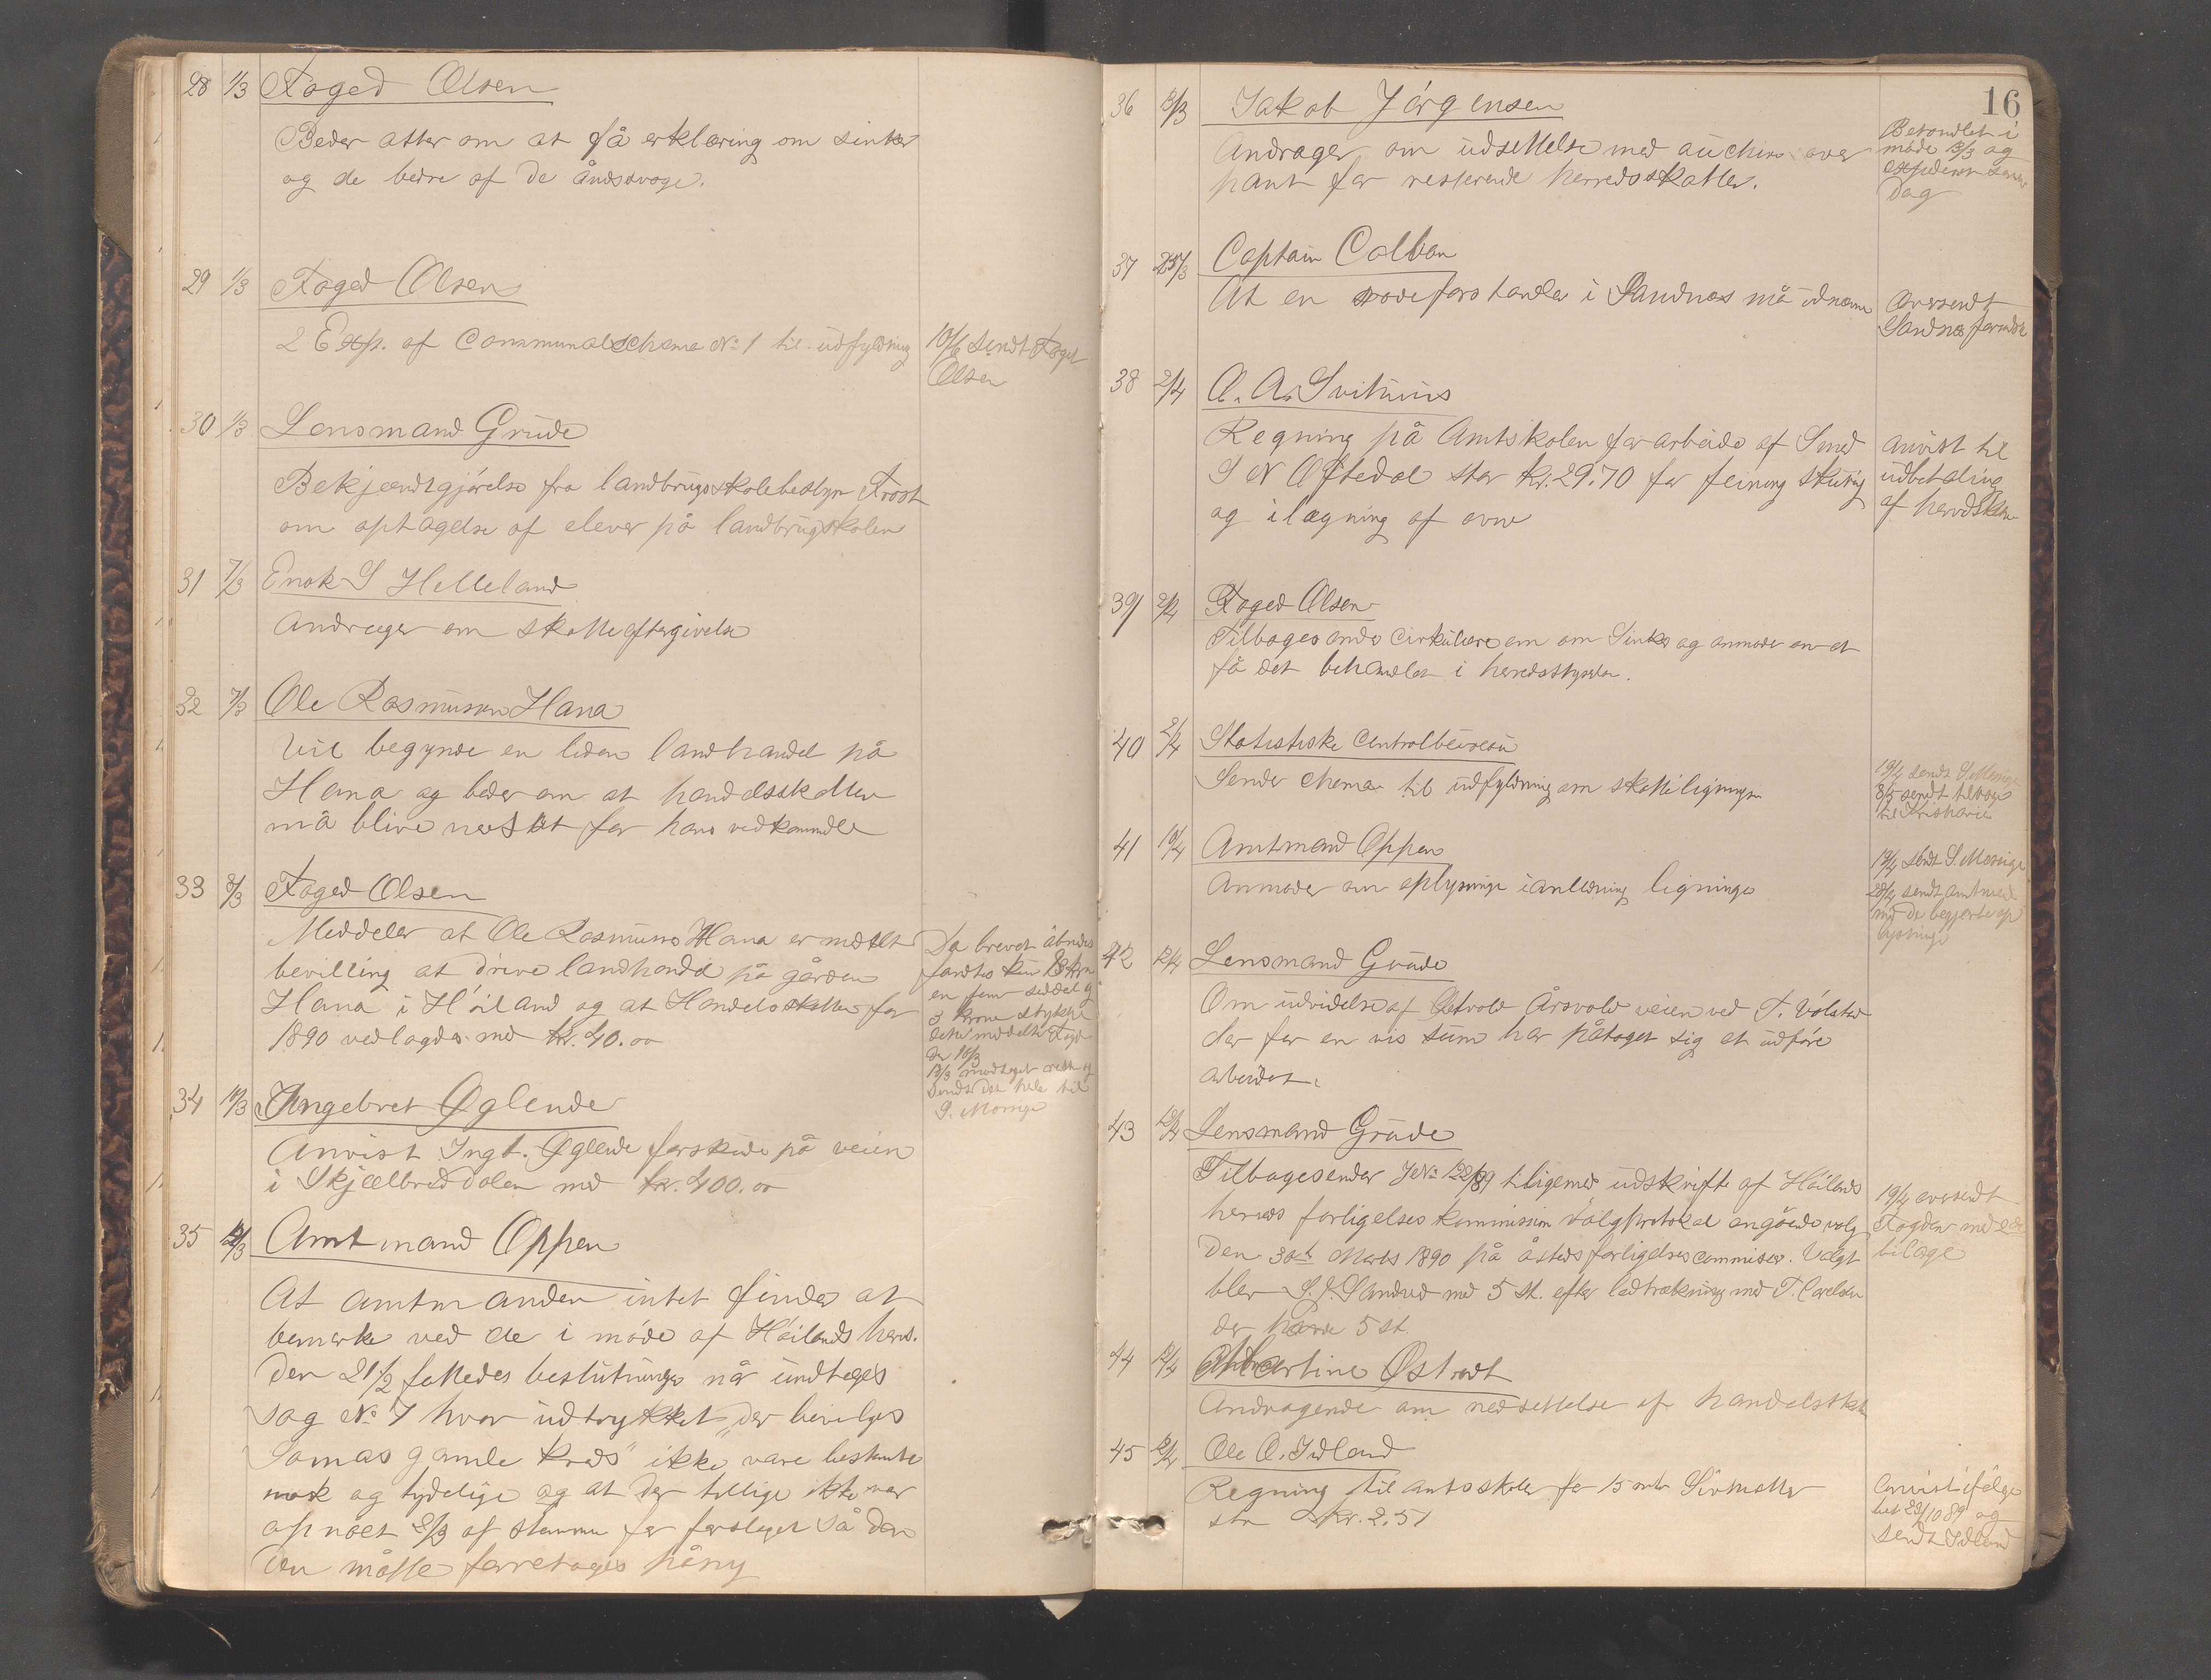 28 1/3 Foged Olsen
Beder atter om at få erklæring om sinker
og de bedre af de åndssvage.
29 1/3 Foged Olsen
2 Exp. af Communalschema No 1 til udfyldning
10/6 sendt Foged
Olsen
30 1/3 Lensmand Grude
Bekjendtgjörelse fra landbrugsskolebestyr Frost
om optagelse af elever på landbrugskolen
31 7/3 Enok S Helleland
Andrager om skatteeftergivelse
32 7/3 Ole Rasmussen Hana
Vil begynde en liden landhandel på
Hana og beder om at handelsskatten
må blive nedsat for hans vedkommde
33 8/3 Foged Olsen
Meddeler at Ole Rasmuss Hana er meddelt
bevilling at drive landhandel på gården
Hana i Höiland og at Handelsskatten for
1890 vedlagdes med kr. 40.00
Da brevet åbnedes
fandtes kun 8 kron
en fem seddel og
3 krone stykker
dette meddeltes Foged
den 10/3
13/3 modtaget rest og
sendt det hele til
S. Morrige
34 10/3 Ingebret Øglende
Anvist Ingb. Øglende forskud på veien
i Skjælbreddalen med kr. 400.00
35 12/3 Amtmand Oppen
At amtmanden intet finder at
bemerke ved de i möde af Höilands herred.
den 21/2 fattedes beslutninger når undtages
sag No 7 hvor udtrykket "der beviliges
Somas gamle kreds" ikke vare bestemte
nok og tydelige og at der tillige ikke var
opnået 2/3 af stemm for forslaget så den
den måtte forretages påny
16
36 13/3 Jakob Jörgensen
Andrager om udsettelse med auction over
pant for resterende herredsskatter.
Behandlet i
möde 13/3 og
expederet samme
Dag
37 25/3 Captain Colban
At en rodeforstander i Sandnes må udnævn
oversendt
Sandnes formdsk
38 2/4 O. A. Svihuus
Regning på Amtskolen for arbeide af Smed
S N Oftedal stor kr. 29.70 for feining skuring
og ilægning af ovne
anvist til
udbetaling
af herredskas
39 2/4 Foged Olsen
Tilbagesende cirkulære om om Sinker og anmoder om at
få det behandlet i herredsstyrelsen.
40 2/4 Statistiske Centralbureau
Sender chema til udfyldning om skatteligningen
19/4 sendt S. Morrige
8/5 sendt tilbage
til Kristiania
41 10/4 Amtmand Oppen
Anmoder om oplysninge i anledning ligninge
19/4 sendt S. Morrige
28/4 sendt amtmand
med de begjærte op
lysninge
42 12/4 Lensmand Grude
Om udvidelse af Årsvold veien ved T. Vólstad
der for en vis sum har påtaget sig at udföre
arbeidet.
43 12/4 Lensmand Grude
Tilbagesender J No 122/89 tilligemed udskrifte af Höilands
herreds forligelses kommission valgprotokol angående valg
den 30te Marts 1890 på åsteds forligelsescommisær. Valgt
blev S. J. Sandved med 5 st. efter lodtrækning med T. Carelsen
der havde 5 st.
19/4 oversendt
Fogden med 2
bilage
44 12/4 Albertine Østrådt
Andragende om nedsettelse af handelsskat
45 12/4 Ole O. Idland
Regning til amtsskolen for 15 mtr Sivmatter
stor kr. 2.51
Anvist ifölge
bes 29/10 89 og
sendt Idland